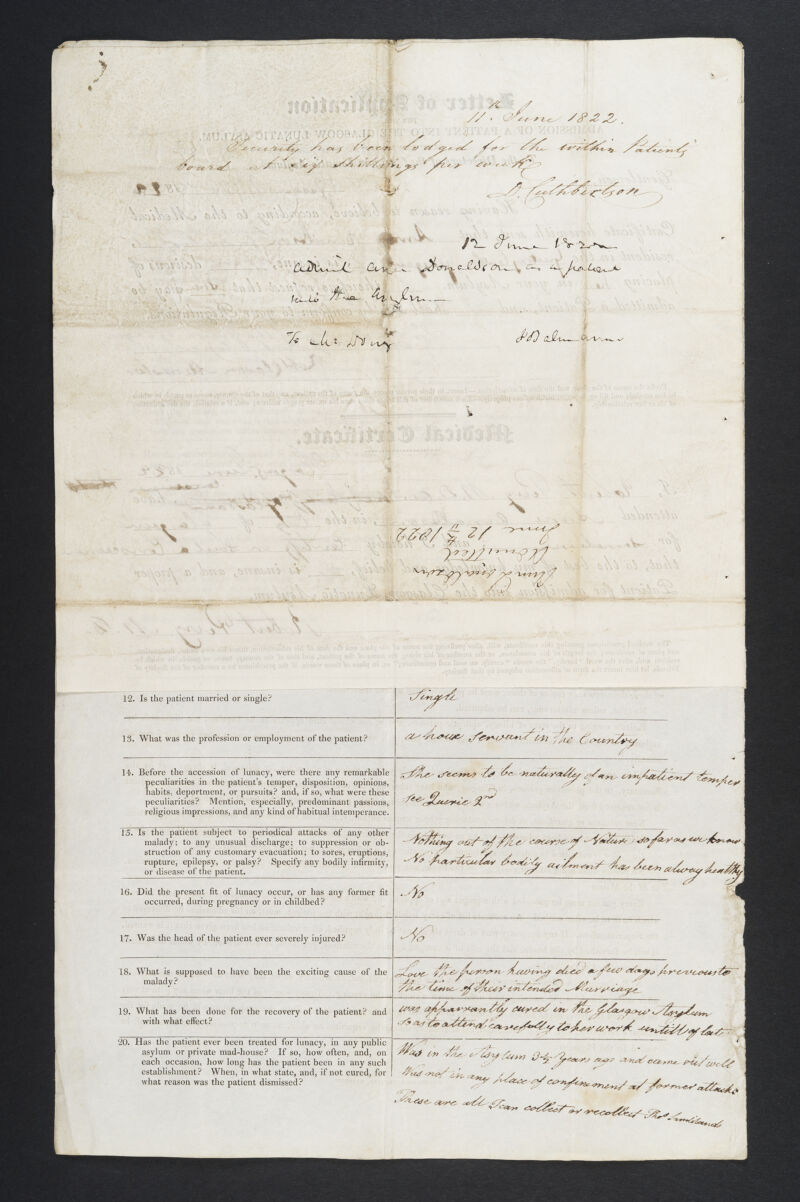 11th June 1822.
Security has been lodged for the within Patients
board at six shillings per week
D. Cuthbertson
12 June 1822
admit Ann Donaldson as a patient
into the Asylum
To Mr Drury
J Balmanno
Ann Donaldson
Admitted
June 12th 1822
12. Is the patient married or single?
Single
13. What was the profession or employment of the patient?
a house servant in the Country
14. Before the accession of lunacy, were there any remarkable
peculiarities in the patient's temper, disposition, opinions,
habits, deportment, or pursuits? and, if so, what were these
peculiarities? Mention, especially, predominant passions,
religious impressions, and any kind of habitual intemperance.
She seems to be naturally of an impatient temper
see Querie 2nd
15. Is the patient subject to periodical attacks of any other
malady; to any unusual discharge; to suppression or ob-
struction of any customary evacuation; to sores, eruptions,
rupture, epilepsy, or palsy? Specify any bodily infirmity,
or disease of the patient.
Nothing out of the course of Nature so far as we know
No particular bodily ailment has been alway healthy
16. Did the present fit of lunacy occur, or has any former fit
occurred, during pregnancy or in childbed?
No
17. Was the head of the patient ever severely injured?
No
18. What is supposed to have been the exciting cause of the
malady?
Love the person having died a few days previous to
the time of their intended Marriage
19. What has been done for the recovery of the patient? and
with what effect?
was apparrantly cured in the Glasgow Asylum
so as to attend carefully to her work untill of late
20. Has the patient ever been treated for lunacy, in any public
asylum or private mad-house? If so, how often, and, on
each occasion, how long has the patient been in any such
establishment? When, in what state, and, if not cured, for
what reason was the patient dismissed?
Was in the Asylum 3½ years ago and came out well
Was not in any place of confinement at former attacks
These are all I can collect or recollect Thos